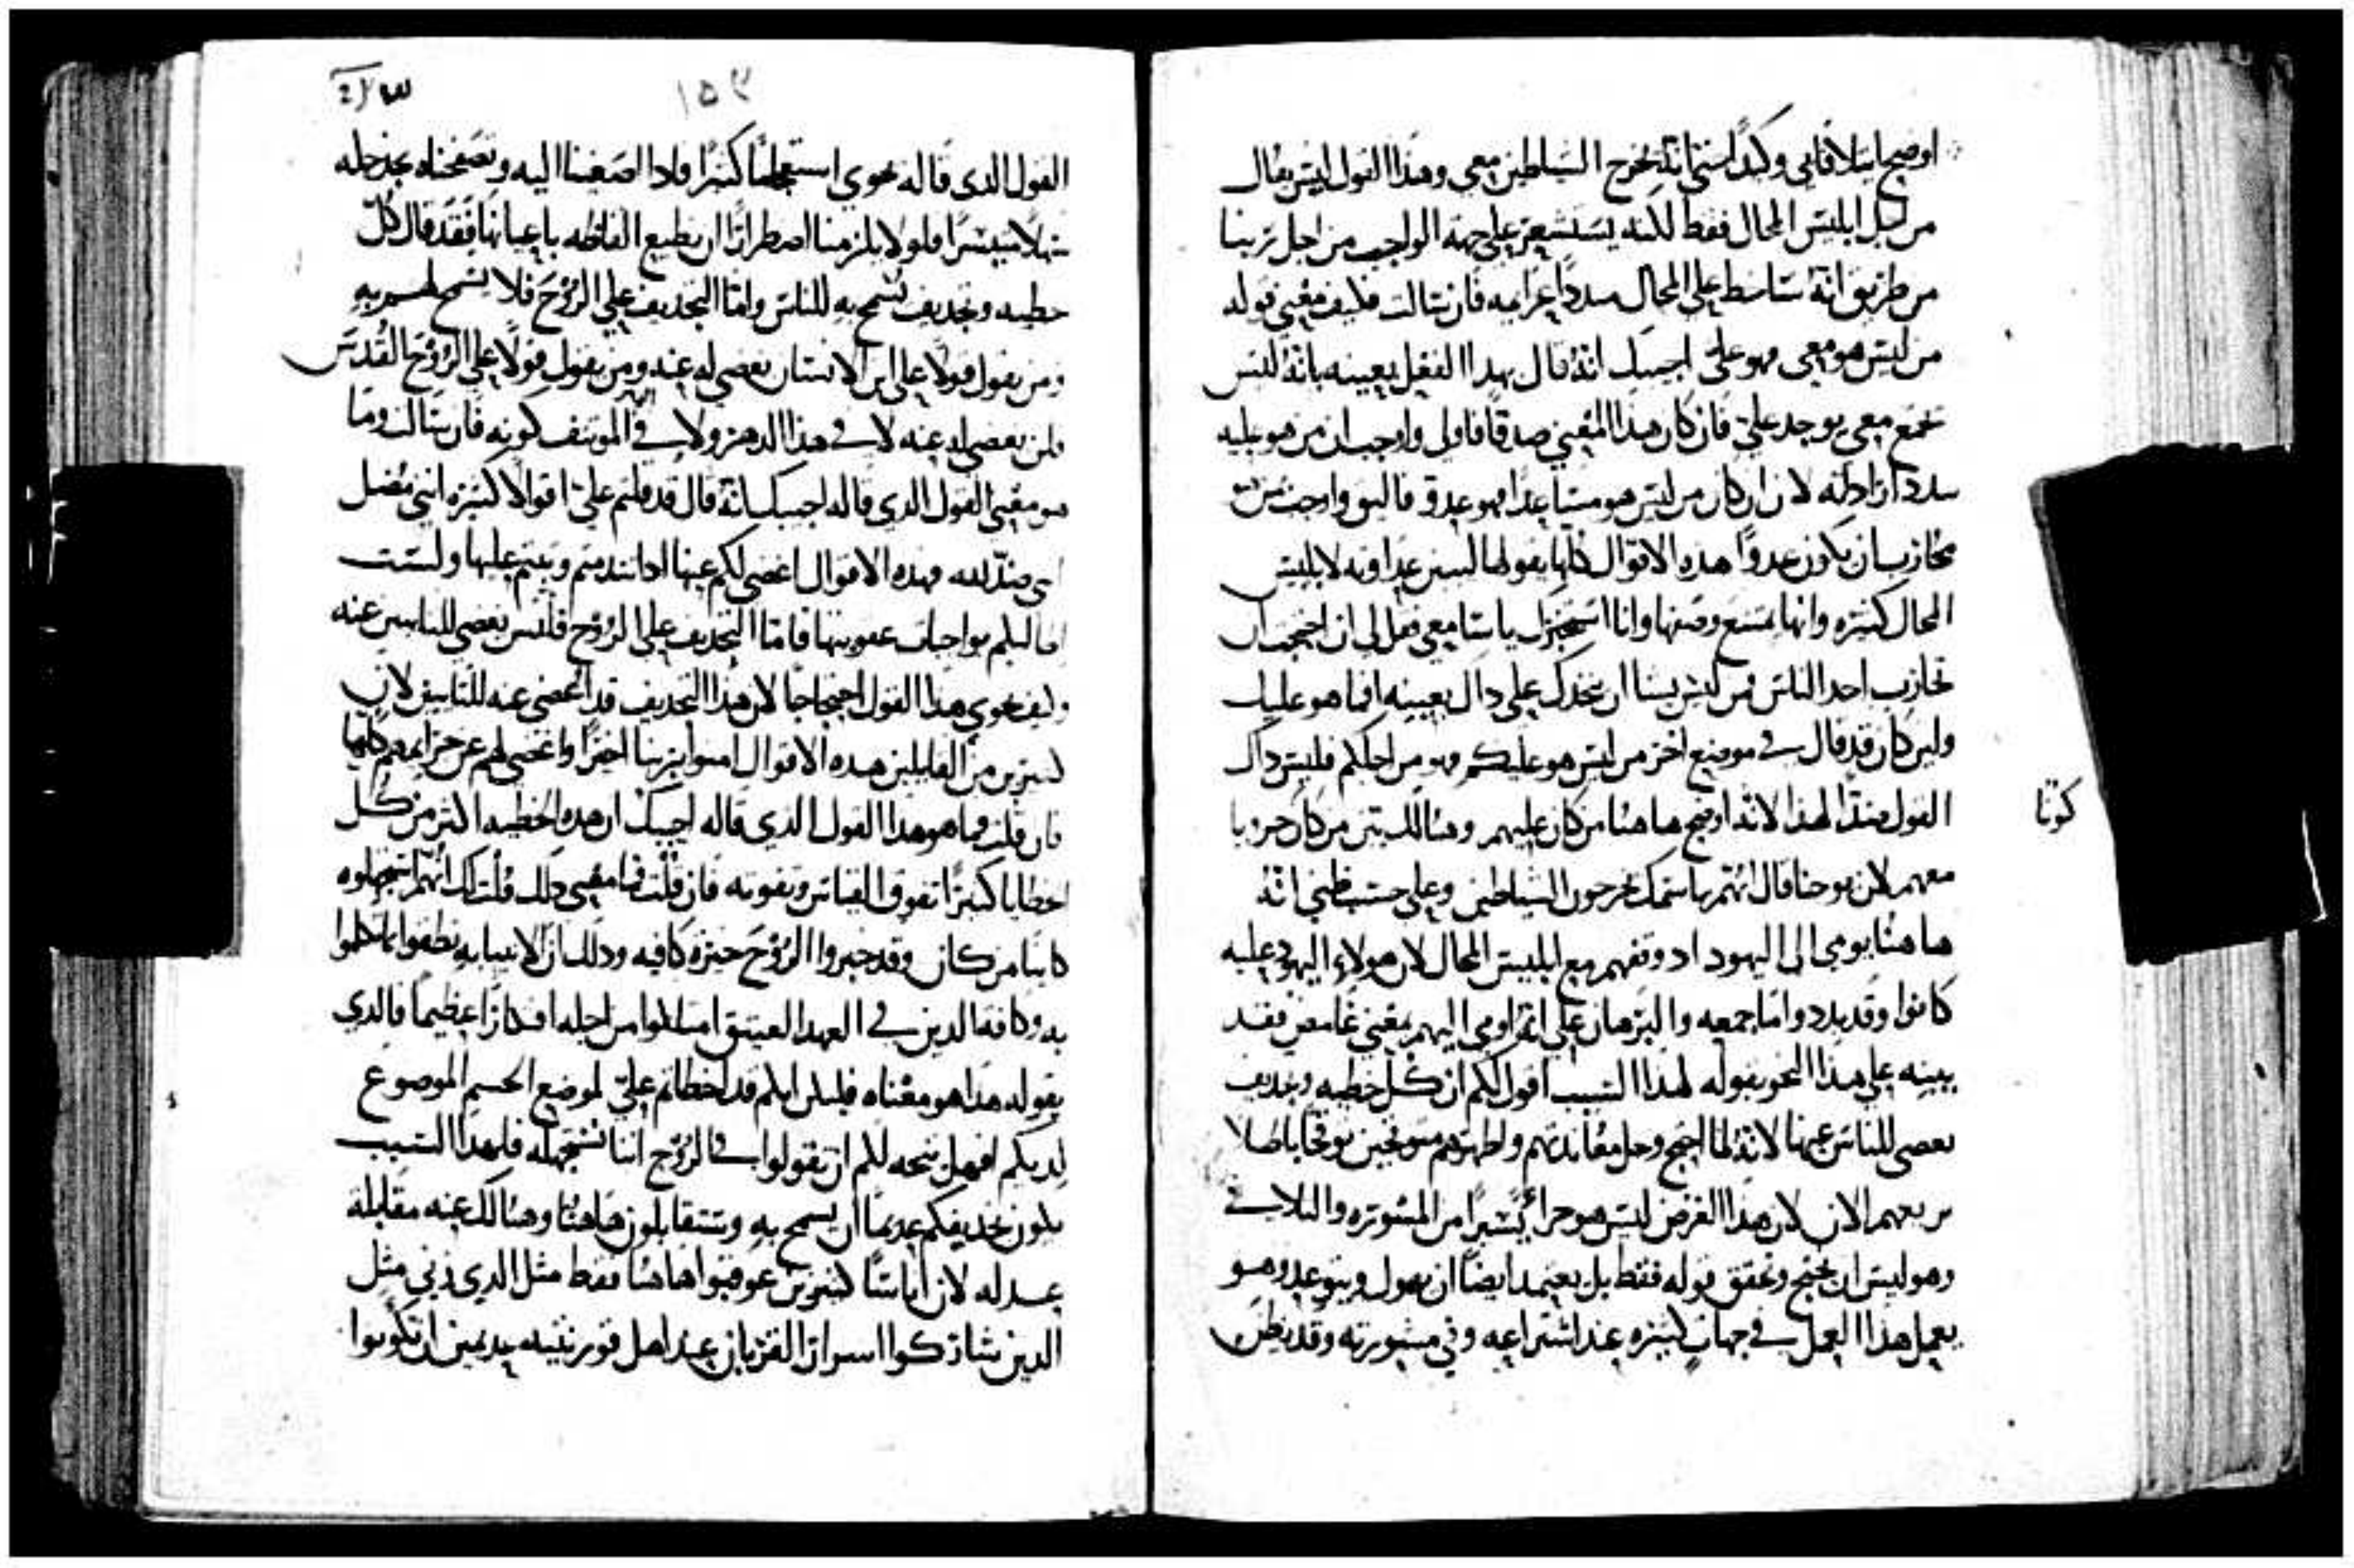 اوضح ابتلافا لي وكدا استمانة تخرج الشياطين معي وهذا القول ليس يقال
من اجل ابليس المحال فقط لكنه يستشعر على جهة الواجب من اجل تربينا
من طريق انه متسلط على المحال مبدد اعزايمه فان سالت فكيف معني قوله
من ليس هو معي فهو علي اجيبك انه قال بهدا الفعل بعينه بانه ليس
تجمع معي يوجد علي فان كان هدا المعني صدقا فاولي واوجب ان من هو عليه
مبددا ارادته لان ان كان من ليس هو مساعدا فهو عدو فاليق واوجب من
تحارب ان يكون عدوا هده الاقوال كلها يقولها ليبين عداوته لابليس
المحال كثيره وانها يمتنع وصفها وانا استخبرك يا سامعي فقل لي ان احتجت ان
تحارب احد الناس فمن ليس يشا ان ينجدك علي داك بعينه افما هو عليك
ولين كان قد قال في موضع اخر من ليس هو عليكم فهو من اجلكم فليس داك
القول ضدا لهذا لانه اوضح هاهنا من كان عليهم وهنالك بين من كان حزويا
كوتا
معهم لان يوحنا قال انهم باسمك يخرجون الشياطين وعلى حسب ظني انه
هاهنا يومي الى اليهود اد وقفهم مع ابليس المحال لان هولاء اليهود عليه
كانوا وقد بددوا ما جمعه والبرهان على انه اومي اليهم بمعني غامض فقد
بينه على هذا النحو بقوله لهذا السبب اقول لكم ان كل خطيه وتجديف
يغضي للناس عنها لانه لما احتج وحل معاندتهم واظهرهم متوقحين توقحا باطلا
يريعهم الان لان هذا الغرض ليس هو جزأ يسيرا من المشوره والتلافي
وهو ليس ان يحتج ويحقق قوله فقط بل يعتمد ايضا ان يهول ويتوعد وهو
يعمل هذا العمل في جهات كثيره عند اشتراعه وفي مشورته وقد يظن
١٥٣
القول الدي قاله يحوي استعجاما كثيرا فادا اصغينا اليه وتصفحناه نجد حله
سهلا متيسرا فلولا يلزمنا اضطرارا ان نطيع الفاظه باعيانها فقد قال كل
خطيه وتجديف يسمح به للناس واما التجديف على الروح فلا يسمح لهم به
ومن يقول قولا على ابن الانسان يغضي له عنه ومن يقول قولا على الروح القدس
فلن يغضي له عنه لا في هذا الدهر ولا في الموتنف كونه فان سالت وما
هو معني القول الدي قاله اجيبك انه قال قد قلتم علي اقوالا كثيره انني مضل
اني ضد لله فهده الاقوال اغضي لكم عنها ادا تندمتم وتبتم عليها ولست
اطالبكم بواجبات عقوبتها فاما التجديف على الروح فليس يغضي للتايبين عنه
وكيف يحوي هدا القول احتجاجا لان هذا التجديف قد اغضي عنه للتايبين لان
كثيرين من القايلين هده الاقوال امنوا بربنا اخيرا واغضي لهم عن جرايمهم كلها
فان قلت وما هو هدا القول الدي قاله اجيبك ان هده الخطيه اكثر من كل
الخطايا كثيرا تفوق القياس وتفوته فان قلت فما معني دلك قلت لك انهم استجهلوه
كاينا من كان وقد خبروا الروح خبره كافيه ودلك ان الانبيا به نطقوا بما تكلموا
به وكافه الدين في العهد العتيق امتلاوا من اجله افكارا عظيما فالدي
يقوله هدا هو معناه فليكن انكم قد اخطاتم علي لموضع الجسم الموضوع
لديكم افهل يتجه لكم ان تقولوا في الروح اننا نستجهله فلهدا السبب
يكون تجديفكم عديما ان يسمح به وتتقابلون هاهنا وهنالك عنه مقابلة
عدله لان اناسا كثيرين عوقبوا هاهنا فقط مثل الدي زني مثل
الدين شاركوا اسرار القربان عند اهل قورنثيه عديمين ان يكونوا